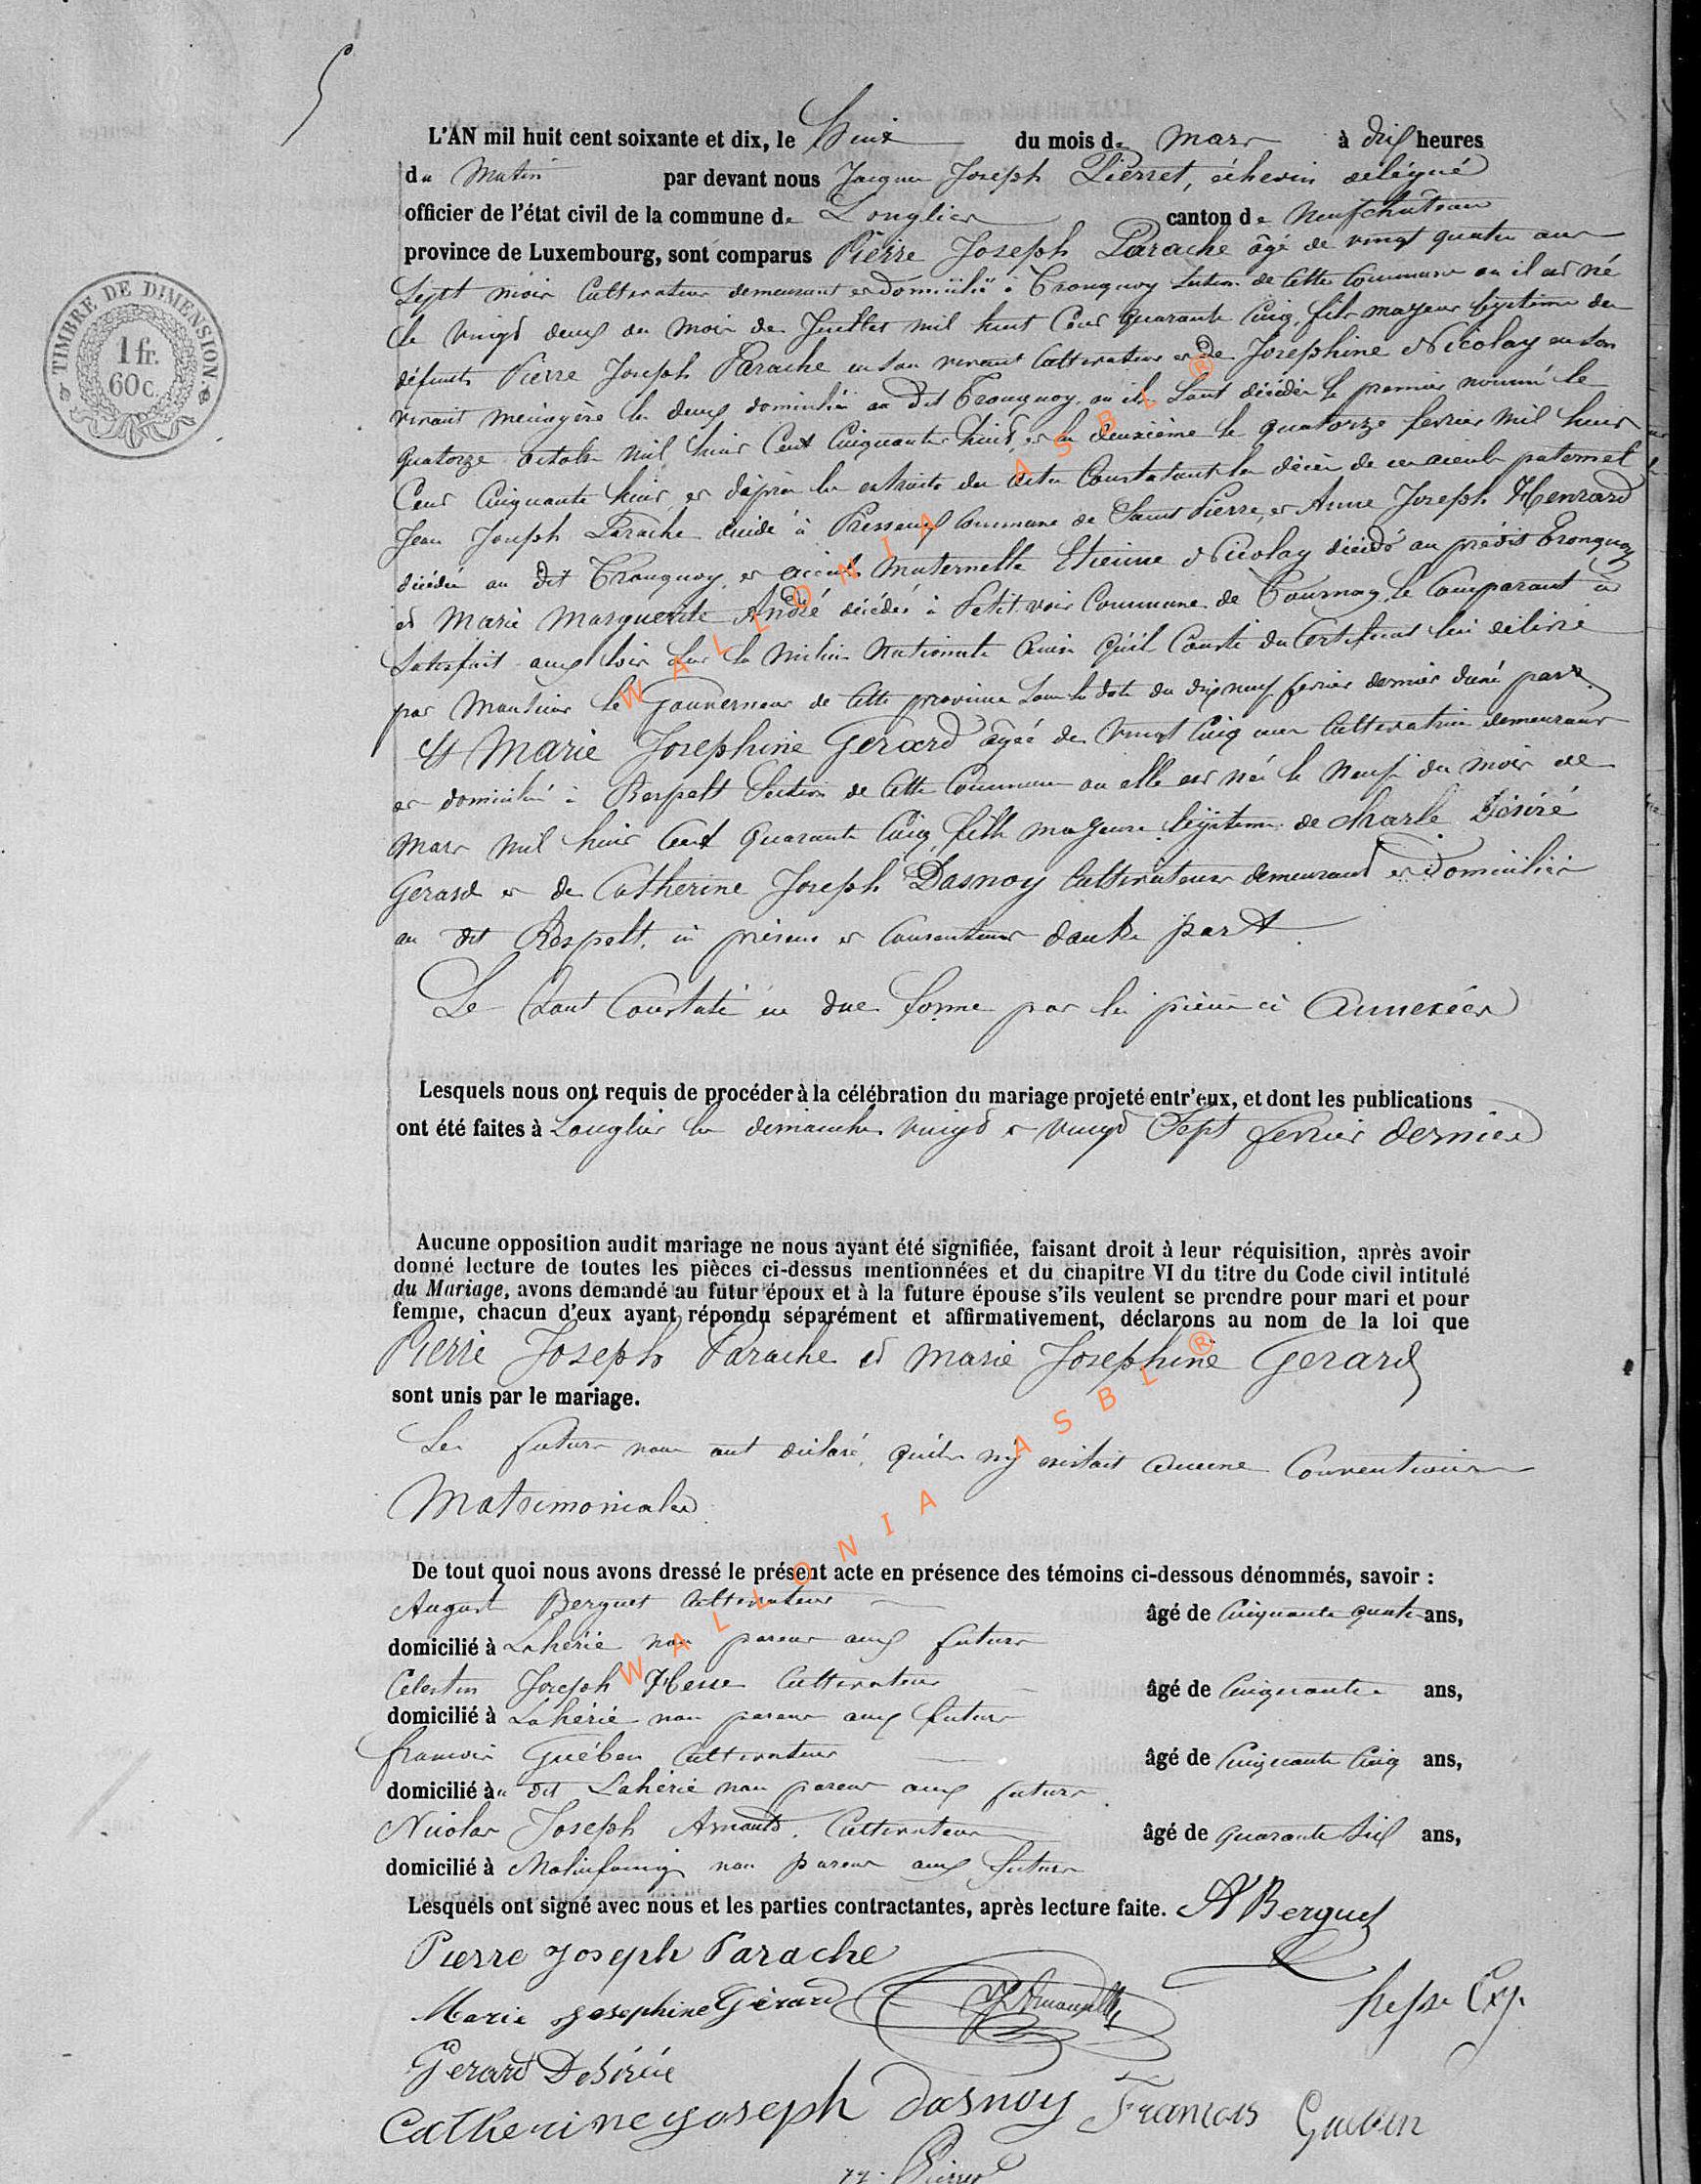 5
L'AN mil huit cent soixante et dix, le huit du mois de mars à dix heures
du Matin par devant nous Jacques Joseph Pierret, échevin délégué
officier de l'état civil de la commune de Longlier canton de Neufchâteau
province de Luxembourg, sont comparus Pierre Joseph Parache âgé de vingt quatre ans
Sept mois Cultivateur demeurant et domicilié à Tronquoy Section de cette Commune où il est né
le vingt deux du mois de Juillet mil huit Cent quarante Cinq, fils majeur légitime des
défunts Pierre Joseph Parache en son vivant Cultivateur et de Josephine Nicolay en son
vivant ménagère les deux domiciliés au dit Tronquoy, où ils sont décédés le premier nommé le
quatorze octobre mil huit Cent Cinquante huit, et la deuxième le quatorze fevrier mil huit
Cent Cinquante huit, et d'après les extraits des actes Constatant les décès de ses aieuls paternels
Jean Joseph Parache décédé à Presseux Commune de Saint Pierre, et Anne Joseph Henrard
décédée au dit Tronquoy, et aieuls Maternelle Etienne Nicolay décédé au prédit Tronquoy
et Marie Marguerite André décédée à Petitvoir Commune de Tournay, le Comparant a
Satisfait aux lois sur la milice Nationale Ainsi qu'il Conste du Certificat lui délivré
par Monsieur le Gouverneur de cette province sous la date du dix neuf fevrier dernier d'une part
Et Marie Josephine Gerard âgée de vingt Cinq ans Cultivatrice demeurant
et domiciliée à Respelt Section de cette Commune où elle est née le Neuf du mois de
Mars mil huit Cent Quarante Cinq, fille majeure légitime de Charle Désiré
Gerard et de Catherine Joseph Dasnoy Cultivateurs demeurant et domiciliés
au dit Respelt, ici présents et Consentants d'autre part
Le tout Constaté en due forme par les pièces ci Annexées
Lesquels nous ont requis de procéder à la célébration du mariage projeté entr'eux, et dont les publications
ont été faites à Longlier les dimanches vingt et vingt Sept fevrier dernier
Aucune opposition audit mariage ne nous ayant été signifiée, faisant droit à leur réquisition, après avoir
donné lecture de toutes les pièces ci-dessus mentionnées et du chapitre VI du titre du Code civil intitulé
du Mariage, avons demandé au futur époux et à la future épouse s'ils veulent se prendre pour mari et pour
femme, chacun d'eux ayant répondu séparément et affirmativement, déclarons au nom de la loi que
Pierre Joseph Parache et Marie Josephine Gerard
sont unis par le mariage.
Les futurs nous ont déclaré, qu'ils n'y existait aucune Conventions
Matrimoniales
De tout quoi nous avons dressé le présent acte en présence des témoins ci-dessous dénommés, savoir :
August Berguet Cultivateur âgé de Cinquante quatre ans,
domicilié à Lahérie non parent aux futurs
Celestin Joseph Hesse Cultivateur âgé de Cinquante ans,
domicilié à Lahérie non parent aux futurs
francois Guében Cultivateur âgé de Cinquante Cinq ans,
domicilié au dit Lahérie non parent aux futurs
Nicolas Joseph Arnould, Cultivateur âgé de quarante Six ans,
domicilié à Molinfaing non parent aux futurs
Lesquels ont signé avec nous et les parties contractantes, après lecture faite. A Berguet
Pierre Joseph Parache
Marie josephine Gérard
Gerard Desirée
Catherine joseph dasnoy Francois Gueben
Pierret
TIMBRE DE DIMENSION
1 fr.
60 c.
WALLONIA ASBL ®
WALLONIA ASBL ®